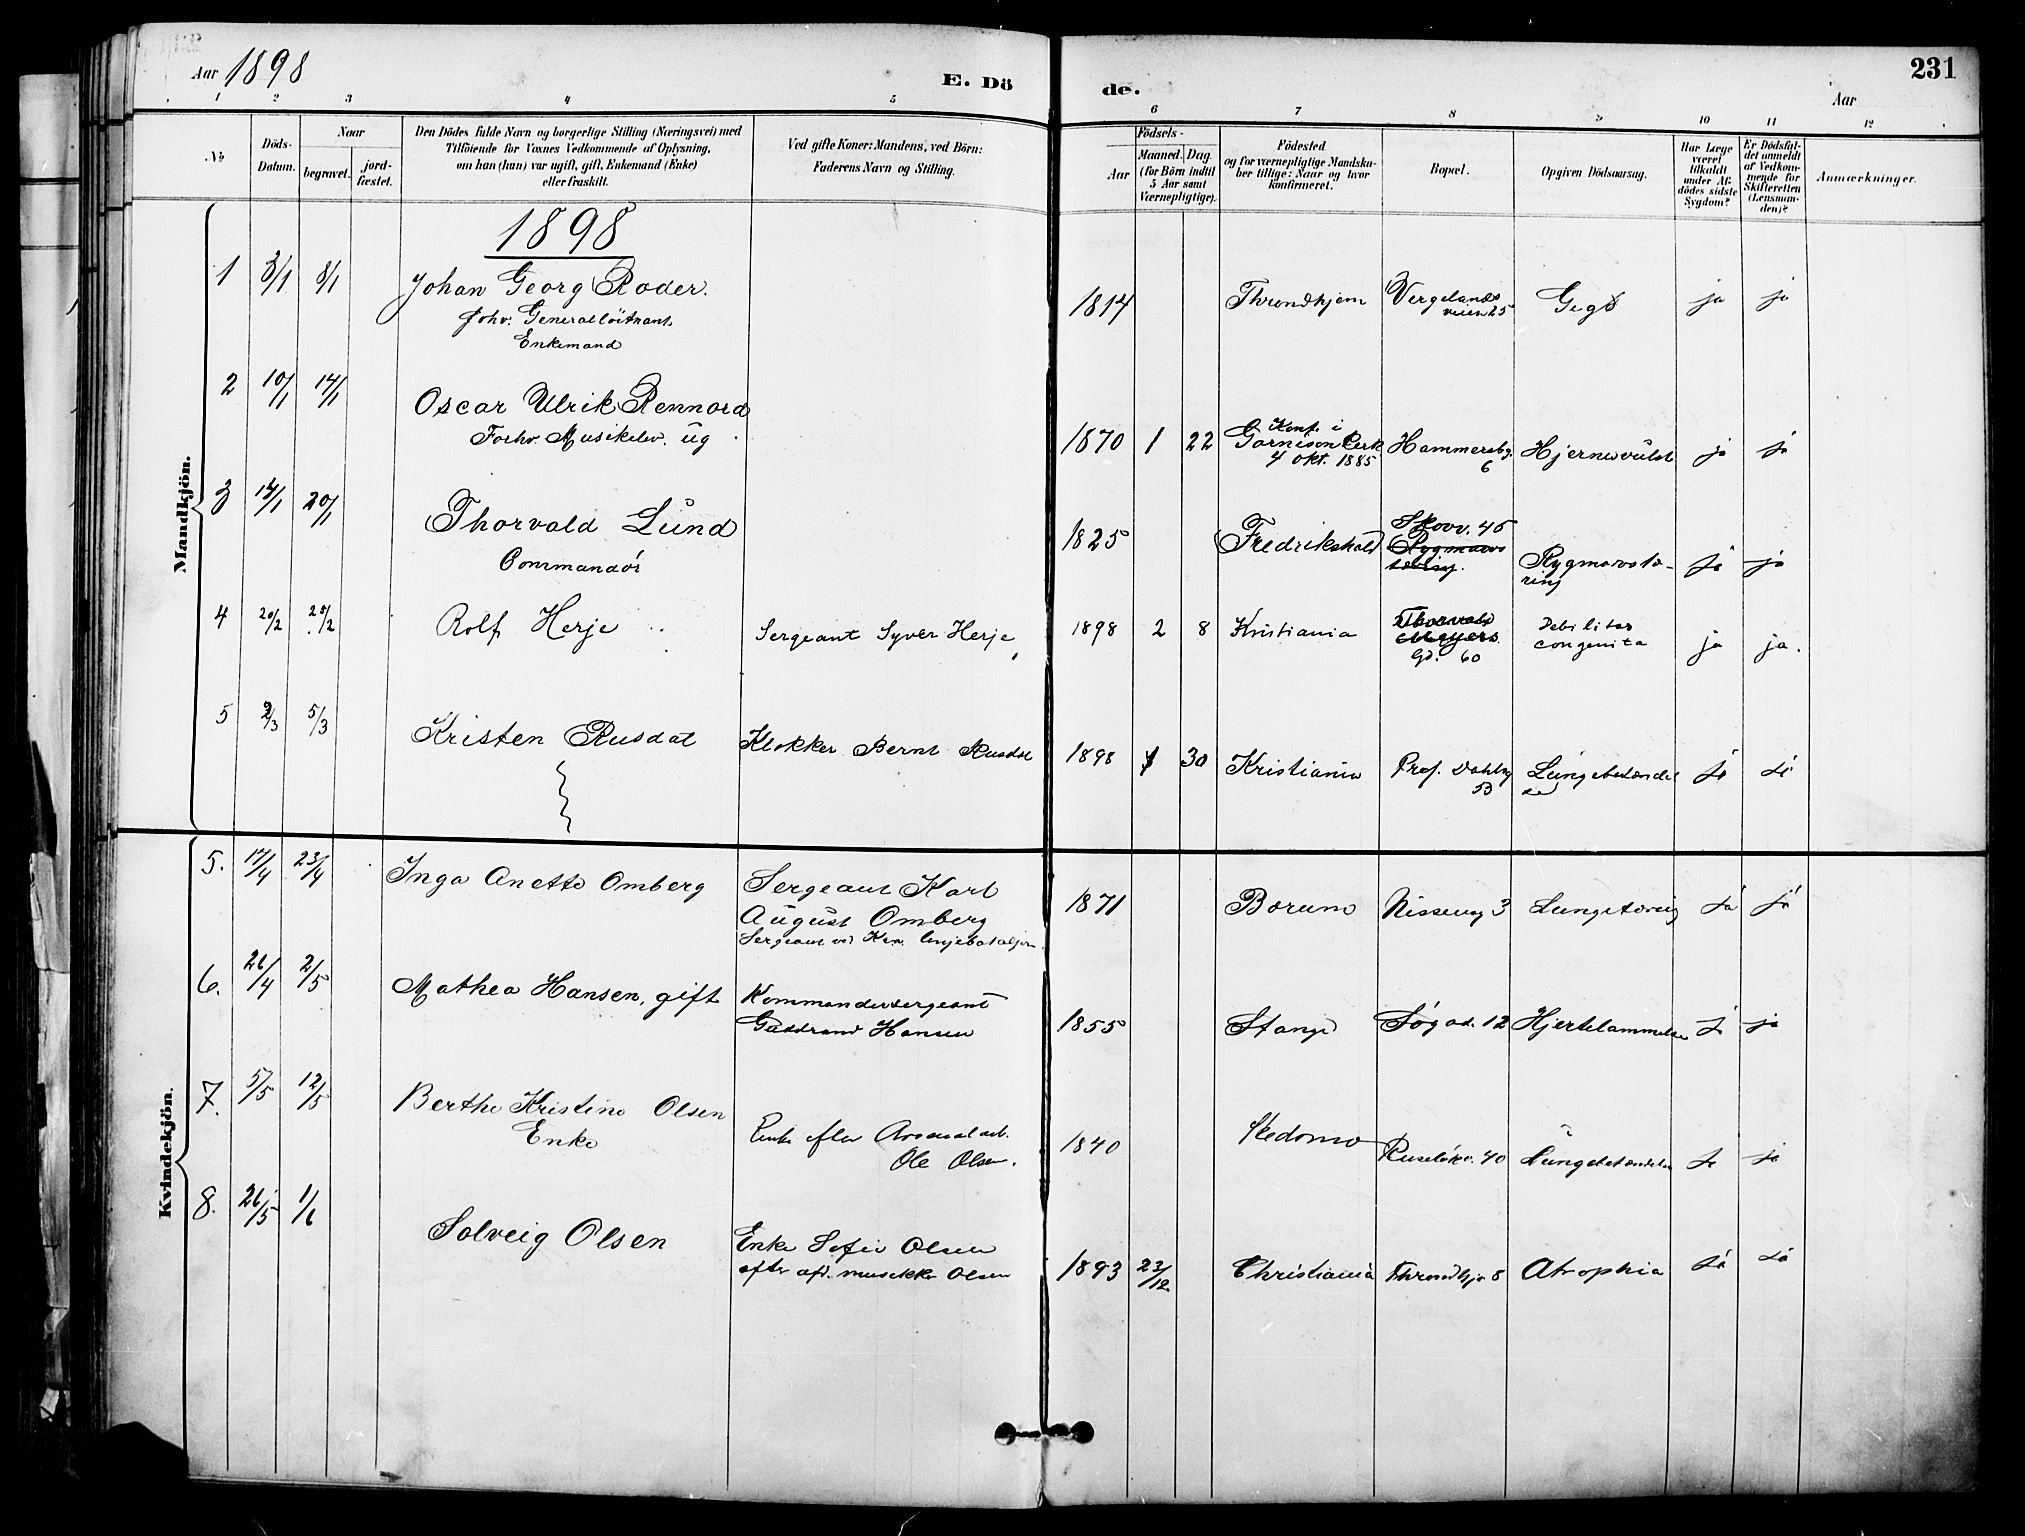 Aar 1898
E. Dö
de.
231
Aar
1 2 3 4 5 6 7 8 9 10 11 12
No
Döds-Datum.
Naar
begravet.
jord-fæstet.
Den Dödes fulde Navn og borgerlige Stilling (Næringsvei) med
Tilföiende for Voxnes Vedkommende af Oplysning,
om han (hun) var ugift, gift, Enkemand (Enke)
eller fraskilt.
Ved gifte Koner: Mandens, ved Börn:
Faderens Navn og Stilling.
Födsels-
Aar
Maaned.
Dag.
(for Börn indtil
5 Aar samt
Værnepligtige).
Födested
og for værnepligtige Mandska-
ber tillige: Naar og hvor
konfirmeret.
Bopæl.
Opgiven Dödsaarsag.
Har Læge
været
tilkaldt
under Af-
dödes sidste
Sygdom?
Er Dödsfal-
det anmeldt
af Vedkom-
mende for
Skifteretten
(Lensman-
den)?
Anmærkninger.
Mandkjön.
1898
1 3/1 8/1 Johan Georg Roder. 1814 Throndhjem Vergelands ja ja
forhv. Generalløitnant veien 25
Enkemand
2 10/1 14/1 Oscar Ulrik Rennord 1870 1 22 Konf. i Hammersbg. ja ja
Forhv. Musikelev. ug Garnison Kerk 6
4 okt. 1885
3 14/1 20/1 Thorvald Lund 1825 Fredrikshald Skovv. 45 Rygmarvstæ- ja ja
Commandör Rygmarvs ring
tæring.
4 20/2 25/2 Rolf Herje Sergeant Syver Herje 1898 2 8 Kristiania Thorvald Debilitas ja ja.
Meyers congenita
Gd. 60
5 2/3 5/3 Kristen Rusdal Klokker Bernt Rusdal 1898 1 30 Kristiania Prof. Dahlsg Lungebetændel ja ja
53 se
Kvindekjön.
5. 17/4 23/4 Inga Anette Omberg Sergeant Karl 1871 Bærum Nisseng 3 Lungetæring ja ja
August Omberg
Sergeant ved Kra. linjebataljon.
6. 26/4 2/5 Mathea Hansen, gift Kommandersergeant 1855 Stange Søgad. 12 Hjertelammelse ja ja
Hansen
7. 5/5 12/5 Berthe Kristine Olsen Enke efter Arsenalarb. 1840 Skedsmo Ruseløkv. 40 Lungebetændelse ja ja
Enke Ole Olsen.
8. 26/5 1/6 Solveig Olsen Enke Sofie Olsen 1893 23/12 Christiania Throndhjv 8 Atrophia ja ja
efter afd. musikker Olsen